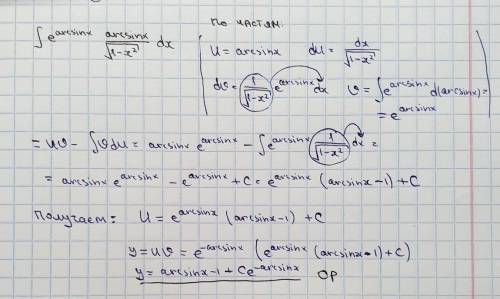 по частям:
∫ e^{arcsinx} \frac{arcsinx}{\sqrt{1-x²}} dx
u = arcsinx du = \frac{dx}{\sqrt{1-x²}}
dv = \frac{1}{\sqrt{1-x²}} e^{arcsinx} dx v = ∫ e^{arcsinx} d(arcsinx) =
= e^{arcsinx}
= uv - ∫ v du = arcsinx e^{arcsinx} - ∫ e^{arcsinx} \frac{1}{\sqrt{1-x²}} dx =
= arcsinx e^{arcsinx} - e^{arcsinx} + C = e^{arcsinx} (arcsinx-1) + C
Получаем: U = e^{arcsinx} (arcsinx-1) + C
y = uv = e^{-arcsinx} (e^{arcsinx} (arcsinx-1) + C)
y = arcsinx-1 + Ce^{-arcsinx} ОР